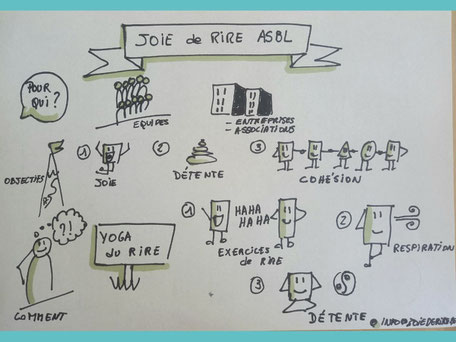 JOIE de RIRE ASBL
POUR
QUI ?
EQUIPES
- ENTREPRISES
- ASSOCIATIONS
OBJECTIFS
1
JOIE
2
DÉTENTE
3
COHÉSION
?!
COMMENT
YOGA
du RIRE
1
HAHA
HAHA
EXERCICES
de RIRE
2
RESPIRATION
3
DÉTENTE